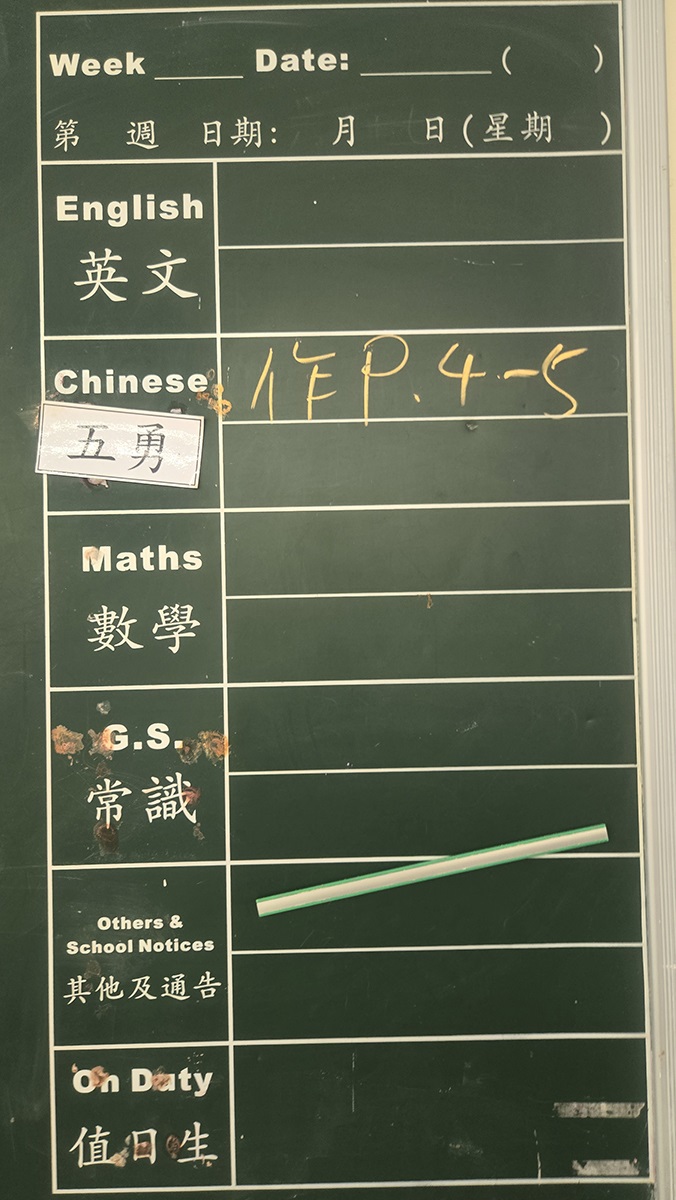 Week ____ Date: ______ (    )
第 週 日期: 月 日(星期 )
English
英文
Chinese
作 P.4-5
五勇
Maths
數學
G.S.
常識
Others &
School Notices
其他及通告
On Duty
值日生